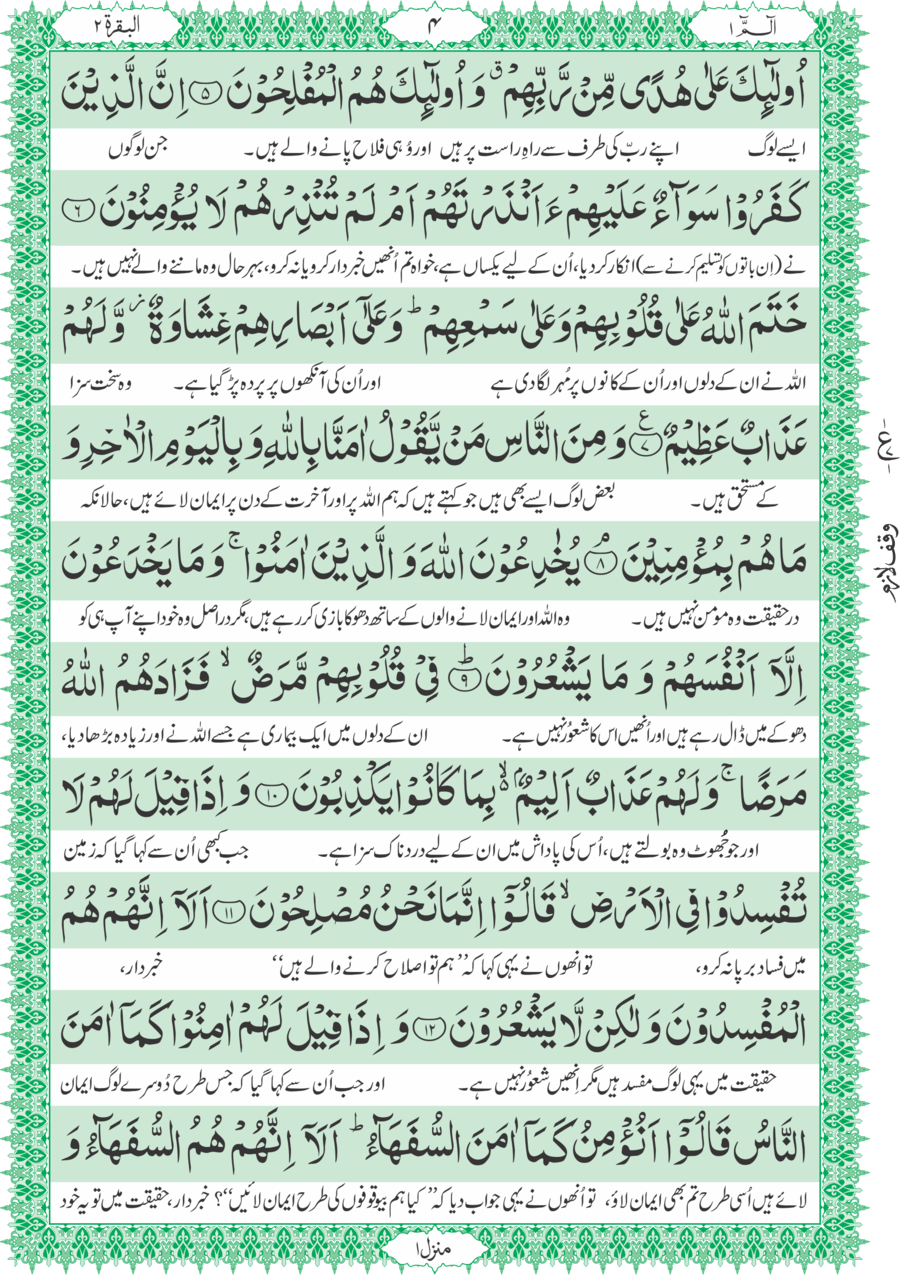 الٓـمّٓ ۱
۴
البقرۃ ۲
اُولٰٓئِكَ عَلٰى هُدًى مِّنْ رَّبِّهِمْ ۗ وَ اُولٰٓئِكَ هُمُ الْمُفْلِحُوْنَ ۝۵ اِنَّ الَّذِيْنَ
ایسے لوگ اپنے ربّ کی طرف سے راہِ راست پر ہیں اور وُہی فلاح پانے والے ہیں۔ جن لوگوں
كَفَرُوْا سَوَآءٌ عَلَيْهِمْ ءَاَنْذَرْتَهُمْ اَمْ لَمْ تُنْذِرْهُمْ لَا يُؤْمِنُوْنَ ۝۶
نے (اِن باتوں کو تسلیم کرنے سے) انکار کردیا، اُن کے لیے یکساں ہے، خواہ تم اُنھیں خبردار کرو یا نہ کرو، بہرحال وہ ماننے والے نہیں ہیں۔
خَتَمَ اللّٰهُ عَلٰى قُلُوْبِهِمْ وَعَلٰى سَمْعِهِمْ ؕ وَعَلٰٓى اَبْصَارِهِمْ غِشَاوَةٌ ؗ وَّلَهُمْ
اللہ نے ان کے دلوں اور اُن کے کانوں پر مُہر لگا دی ہے اور اُن کی آنکھوں پر پردہ پڑ گیا ہے۔ وہ سخت سزا
عَذَابٌ عَظِيْمٌ ۝۷ ع وَ مِنَ النَّاسِ مَنْ يَّقُوْلُ اٰمَنَّا بِاللّٰهِ وَ بِالْيَوْمِ الْاٰخِرِ وَ
کے مستحق ہیں۔ بعض لوگ ایسے بھی ہیں جو کہتے ہیں کہ ہم اللہ پر اور آخرت کے دن پر ایمان لائے ہیں، حالانکہ
مَا هُمْ بِمُؤْمِنِيْنَ ۝۸ۘ يُخٰدِعُوْنَ اللّٰهَ وَ الَّذِيْنَ اٰمَنُوْا ۚ وَ مَا يَخْدَعُوْنَ
وقف لازم
درحقیقت وہ مومن نہیں ہیں۔ وہ اللہ اور ایمان لانے والوں کے ساتھ دھوکا بازی کر رہے ہیں، مگر دراصل وہ خود اپنے آپ ہی کو
اِلَّاۤ اَنْفُسَهُمْ وَ مَا يَشْعُرُوْنَ ۝۹ؕ فِيْ قُلُوْبِهِمْ مَّرَضٌ ۙ فَزَادَهُمُ اللّٰهُ
دھوکے میں ڈال رہے ہیں اور اُنھیں اس کا شعُور نہیں ہے۔ ان کے دلوں میں ایک بیماری ہے جسے اللہ نے اور زیادہ بڑھا دیا،
مَرَضًا ۚ وَ لَهُمْ عَذَابٌ اَلِيْمٌۢ ۙ۬ بِمَا كَانُوْا يَكْذِبُوْنَ ۝۱۰ وَ اِذَا قِيْلَ لَهُمْ لَا
اور جو جُھوٹ وہ بولتے ہیں، اُس کی پاداش میں ان کے لیے دردناک سزا ہے۔ جب کبھی اُن سے کہا گیا کہ زمین
تُفْسِدُوْا فِي الْاَرْضِ ۙ قَالُوْۤا اِنَّمَا نَحْنُ مُصْلِحُوْنَ ۝۱۱ اَلَاۤ اِنَّهُمْ هُمُ
میں فساد برپا نہ کرو، تو انھوں نے یہی کہا کہ ’’ہم تو اصلاح کرنے والے ہیں‘‘ خبردار،
الْمُفْسِدُوْنَ وَ لٰكِنْ لَّا يَشْعُرُوْنَ ۝۱۲ وَ اِذَا قِيْلَ لَهُمْ اٰمِنُوْا كَمَاۤ اٰمَنَ
حقیقت میں یہی لوگ مفسد ہیں مگر اِنھیں شعُور نہیں ہے۔ اور جب اُن سے کہا گیا کہ جس طرح دُوسرے لوگ ایمان
النَّاسُ قَالُوْۤا اَنُؤْمِنُ كَمَاۤ اٰمَنَ السُّفَهَآءُ ؕ اَلَاۤ اِنَّهُمْ هُمُ السُّفَهَآءُ وَ
لائے ہیں اُسی طرح تم بھی ایمان لاؤ، تو اُنھوں نے یہی جواب دیا کہ ’’کیا ہم بیوقوفوں کی طرح ایمان لائیں‘‘؟ خبردار، حقیقت میں تو یہ خود
منزل ۱